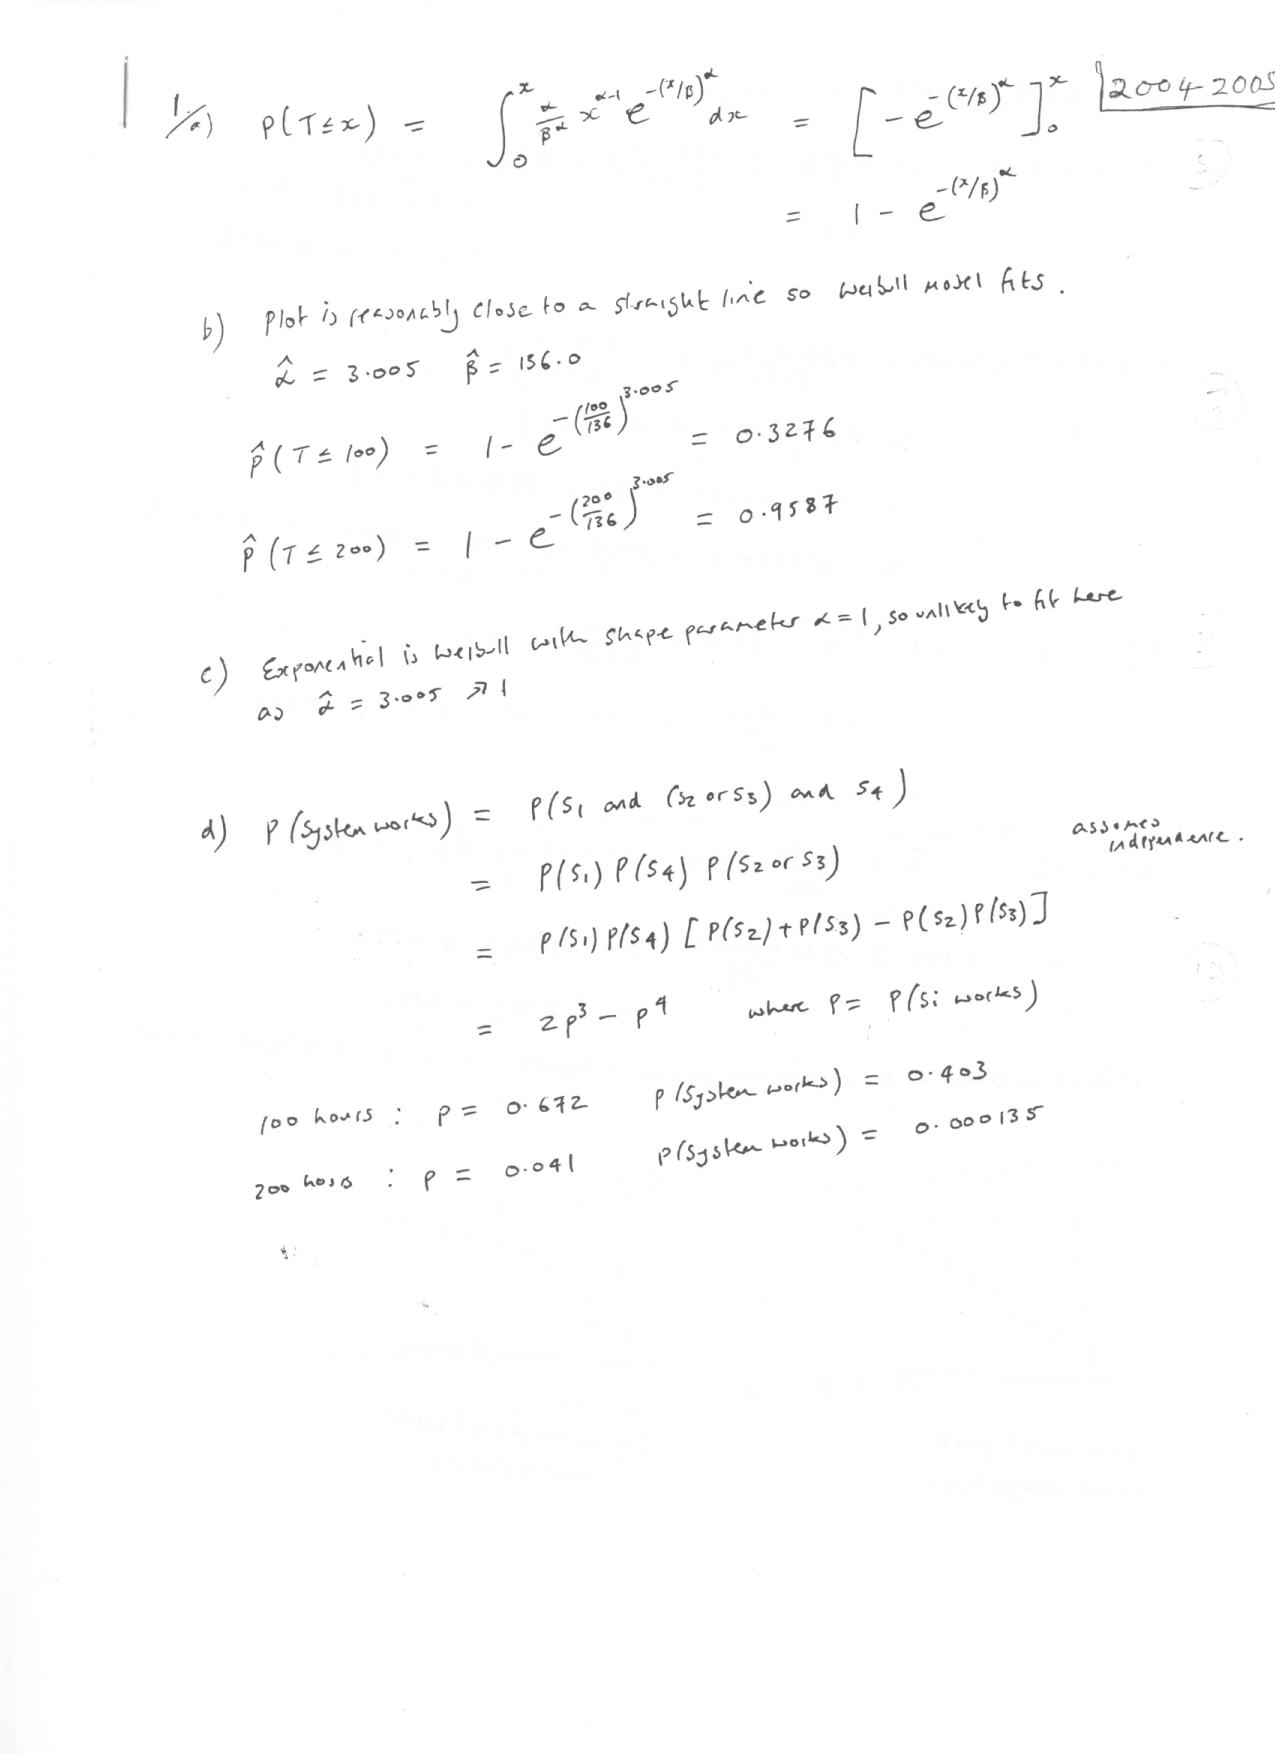 2004-2005
1/a) P(T≤x) = ∫₀ˣ α/β^α x^(α-1) e^(-(x/β)^α) dx = [-e^(-(x/β)^α)]₀ˣ
= 1 - e^(-(x/β)^α)
b) Plot is reasonably close to a straight line so Weibull Model fits.
α̂ = 3.005 β̂ = 136.0
p̂(T≤100) = 1 - e^(-(100/136)^3.005) = 0.3276
p̂(T≤200) = 1 - e^(-(200/136)^3.005) = 0.9587
c) Exponential is Weibull with shape parameter α=1, so unlikely to fit here
as α̂ = 3.005 >> 1
d) P(System works) = P(S₁ and (S₂ or S₃) and S₄)
assumes independence.
= P(S₁) P(S₄) P(S₂ or S₃)
= P(S₁) P(S₄) [P(S₂)+P(S₃) - P(S₂)P(S₃)]
= 2p³ - p⁴ where P = P(Si works)
100 hours : p = 0.672 P(System works) = 0.403
200 hours : p = 0.041 P(System works) = 0.000135